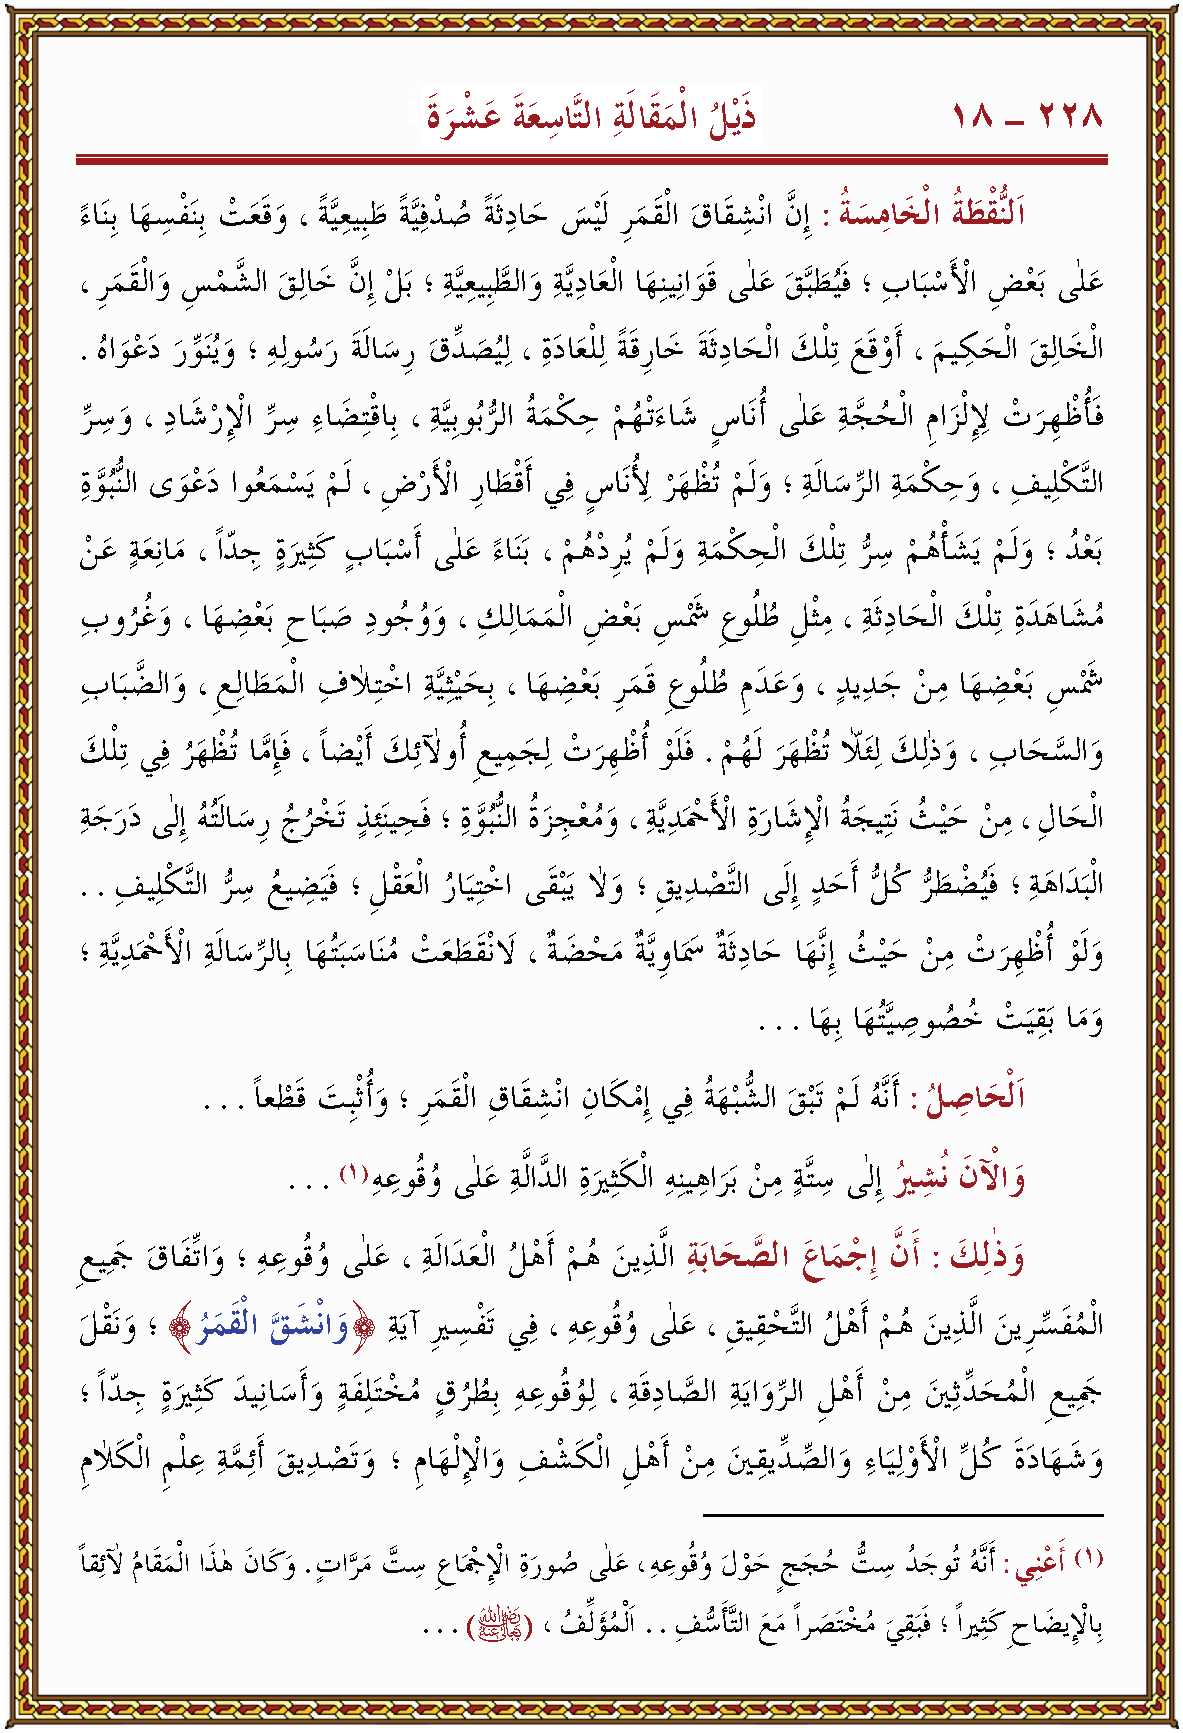 ٢٢٨ – ١٨ ذَيْلُ الْمَقَالَةِ التَّاسِعَةَ عَشْرَةَ
اَلنُّقْطَةُ الْخَامِسَةُ : إِنَّ انْشِقَاقَ الْقَمَرِ لَيْسَ حَادِثَةً صُدْفِيَّةً طَبِيعِيَّةً ، وَقَعَتْ بِنَفْسِهَا بِنَاءً
عَلٰى بَعْضِ الْأَسْبَابِ ؛ فَيُطَبَّقَ عَلٰى قَوَانِينِهَا الْعَادِيَّةِ وَالطَّبِيعِيَّةِ ؛ بَلْ إِنَّ خَالِقَ الشَّمْسِ وَالْقَمَرِ ،
الْخَالِقَ الْحَكِيمَ ، أَوْقَعَ تِلْكَ الْحَادِثَةَ خَارِقَةً لِلْعَادَةِ ، لِيُصَدِّقَ رِسَالَةَ رُسُولِهِ ؛ وَيُنَوِّرَ دَعْوَاهُ .
فَأُظْهِرَتْ لِإِلْزَامِ الْحُجَّةِ عَلٰى أُنَاسٍ شَاءَتْهُمْ حِكْمَةُ الرُّبُوبِيَّةِ ، بِاقْتِضَاءِ سِرِّ الْإِرْشَادِ ، وَسِرِّ
التَّكْلِيفِ ، وَحِكْمَةِ الرِّسَالَةِ ؛ وَلَمْ تُظْهَرْ لِأُنَاسٍ فِي أَقْطَارِ الْأَرْضِ ، لَمْ يَسْمَعُوا دَعْوَى النُّبُوَّةِ
بَعْدُ ؛ وَلَمْ يَشَأْهُمْ سِرُّ تِلْكَ الْحِكْمَةِ وَلَمْ يُرِدْهُمْ ، بَنَاءً عَلٰى أَسْبَابٍ كَثِيرَةٍ جِدّاً ، مَانِعَةٍ عَنْ
مُشَاهَدَةِ تِلْكَ الْحَادِثَةِ ، مِثْلِ طُلُوعِ شَمْسِ بَعْضِ الْمَمَالِكِ ، وَوُجُودِ صَبَاحِ بَعْضِهَا ، وَغُرُوبِ
شَمْسِ بَعْضِهَا مِنْ جَدِيدٍ ، وَعَدَمِ طُلُوعِ قَمَرِ بَعْضِهَا ، بِحَيْثِيَّةِ اخْتِلَافِ الْمَطَالِعِ ، وَالضَّبَابِ
وَالسَّحَابِ ، وَذٰلِكَ لِئَلَّا تُظْهَرَ لَهُمْ . فَلَوْ أُظْهِرَتْ لِجَمِيعِ أُولٰٓئِكَ أَيْضاً ، فَإِمَّا تُظْهَرُ فِي تِلْكَ
الْحَالِ ، مِنْ حَيْثُ نَتِيجَةُ الْإِشَارَةِ الْأَحْمَدِيَّةِ ، وَمُعْجِزَةُ النُّبُوَّةِ ؛ فَحِينَئِذٍ تَخْرُجُ رِسَالَتُهُ إِلٰى دَرَجَةِ
الْبَدَاهَةِ ؛ فَيُضْطَرُّ كُلُّ أَحَدٍ إِلَى التَّصْدِيقِ ؛ وَلَا يَبْقَى اخْتِيَارُ الْعَقْلِ ؛ فَيَضِيعُ سِرُّ التَّكْلِيفِ . .
وَلَوْ أُظْهِرَتْ مِنْ حَيْثُ إِنَّهَا حَادِثَةٌ سَمَاوِيَّةٌ مَحْضَةٌ ، لَانْقَطَعَتْ مُنَاسَبَتُهَا بِالرِّسَالَةِ الْأَحْمَدِيَّةِ ؛
وَمَا بَقِيَتْ خُصُوصِيَّتُهَا بِهَا . . .
اَلْحَاصِلُ : أَنَّهُ لَمْ تَبْقَ الشُّبْهَةُ فِي إِمْكَانِ انْشِقَاقِ الْقَمَرِ ؛ وَأُثْبِتَ قَطْعاً . . .
وَالْآنَ نُشِيرُ إِلٰى سِتَّةٍ مِنْ بَرَاهِينِهِ الْكَثِيرَةِ الدَّالَّةِ عَلٰى وُقُوعِهِ(١) . . .
وَذٰلِكَ : أَنَّ إِجْمَاعَ الصَّحَابَةِ الَّذِينَ هُمْ أَهْلُ الْعَدَالَةِ ، عَلٰى وُقُوعِهِ ؛ وَاتِّفَاقَ جَمِيعِ
الْمُفَسِّرِينَ الَّذِينَ هُمْ أَهْلُ التَّحْقِيقِ ، عَلٰى وُقُوعِهِ ، فِي تَفْسِيرِ آيَةِ ﴿وَانْشَقَّ الْقَمَرُ﴾ ؛ وَنَقْلَ
جَمِيعِ الْمُحَدِّثِينَ مِنْ أَهْلِ الرِّوَايَةِ الصَّادِقَةِ ، لِوُقُوعِهِ بِطُرُقٍ مُخْتَلِفَةٍ وَأَسَانِيدَ كَثِيرَةٍ جِدّاً ؛
وَشَهَادَةَ كُلِّ الْأَوْلِيَاءِ وَالصِّدِّيقِينَ مِنْ أَهْلِ الْكَشْفِ وَالْإِلْهَامِ ؛ وَتَصْدِيقَ أَئِمَّةِ عِلْمِ الْكَلَامِ
(١) أَعْنِي : أَنَّهُ تُوجَدُ سِتُّ حُجَجٍ حَوْلَ وُقُوعِهِ ، عَلٰى صُورَةِ الْإِجْمَاعِ سِتَّ مَرَّاتٍ . وَكَانَ هٰذَا الْمَقَامُ لَائِقاً
بِالْإِيضَاحِ كَثِيراً ؛ فَبَقِيَ مُخْتَصَراً مَعَ التَّأَسُّفِ . . اَلْمُؤَلِّفُ ، (رَضِيَ اللهُ تَعَالٰى عَنْهُ) . . .